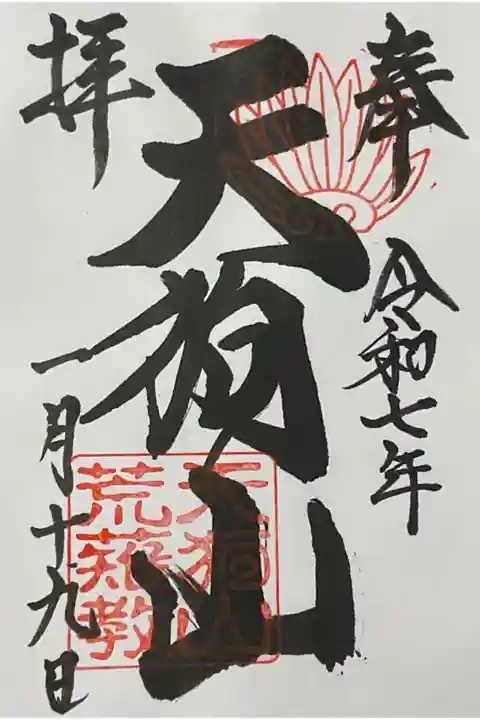 奉
令和七年
天狗山
拝
一月十九日
天狗山
荒薙教